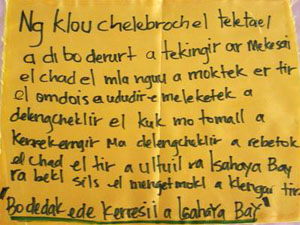 Ng klou chelebrochel teletael
a di bo derurt a tekingir ar Mekesai
el chad el mla nguu a moktek er tir
el omdois a ududir e meleketek a
delengcheklir el kuk mo tomall a
kerrekerngir ma delengcheklir a rebetok
el chad el tir a ultuil ra Isahaya Bay
ra bekl sils el menget mokl a klengar tir.
"Bo dedak ede kerresil a Isahaya Bay"